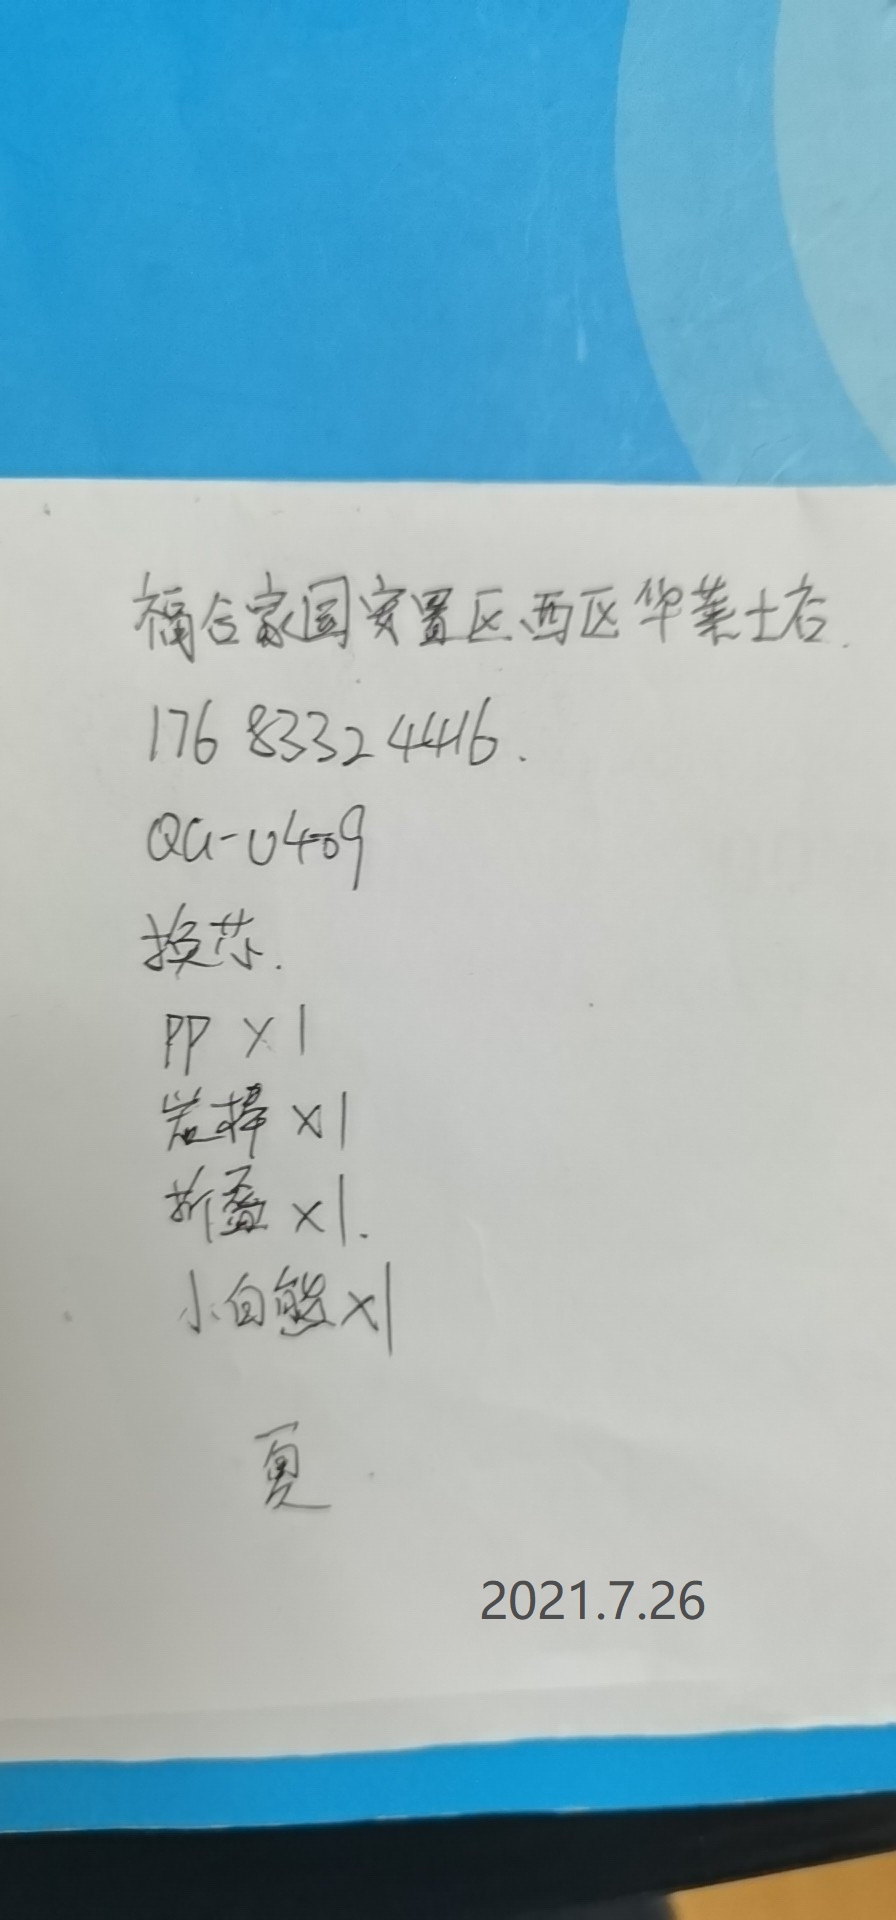 福合家园安置区西区华莱士右.
176 8332 4416.
QG-U409
换芯.
PP ×1
炭棒 ×1
×1.
小白熊×1
夏
2021.7.26